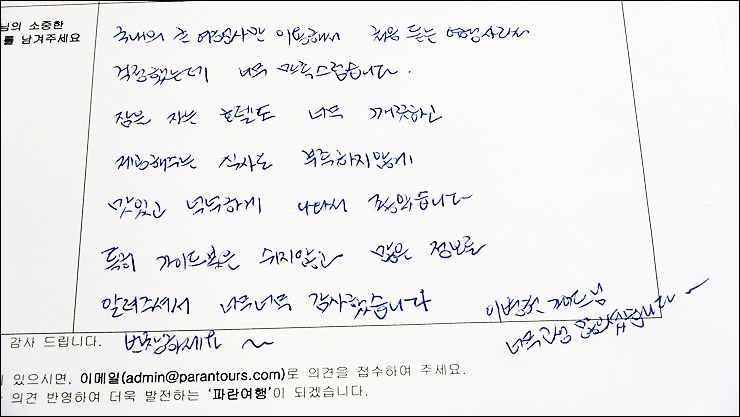 님의 소중한
를 남겨주세요
국내의 큰 여행사만 이용해서 처음 듣는 여행사라서
걱정했는데 너무 만족스럽습니다.
잠을 자는 호텔도 너무 깨끗하고
제공해주는 식사도 부족하지않게
맛있고 넉넉하게 나와서 좋았습니다
특히 가이드분은 쉬지않고 많은 정보를
알려주셔서 너무너무 감사했습니다
번창하세요 ~
이번 가이드님
너무 고생 많으셨습니다 ~
감사 드립니다.
있으시면, 이메일(admin@parantours.com)로 의견을 접수하여 주세요.
의견 반영하여 더욱 발전하는 '파란여행'이 되겠습니다.